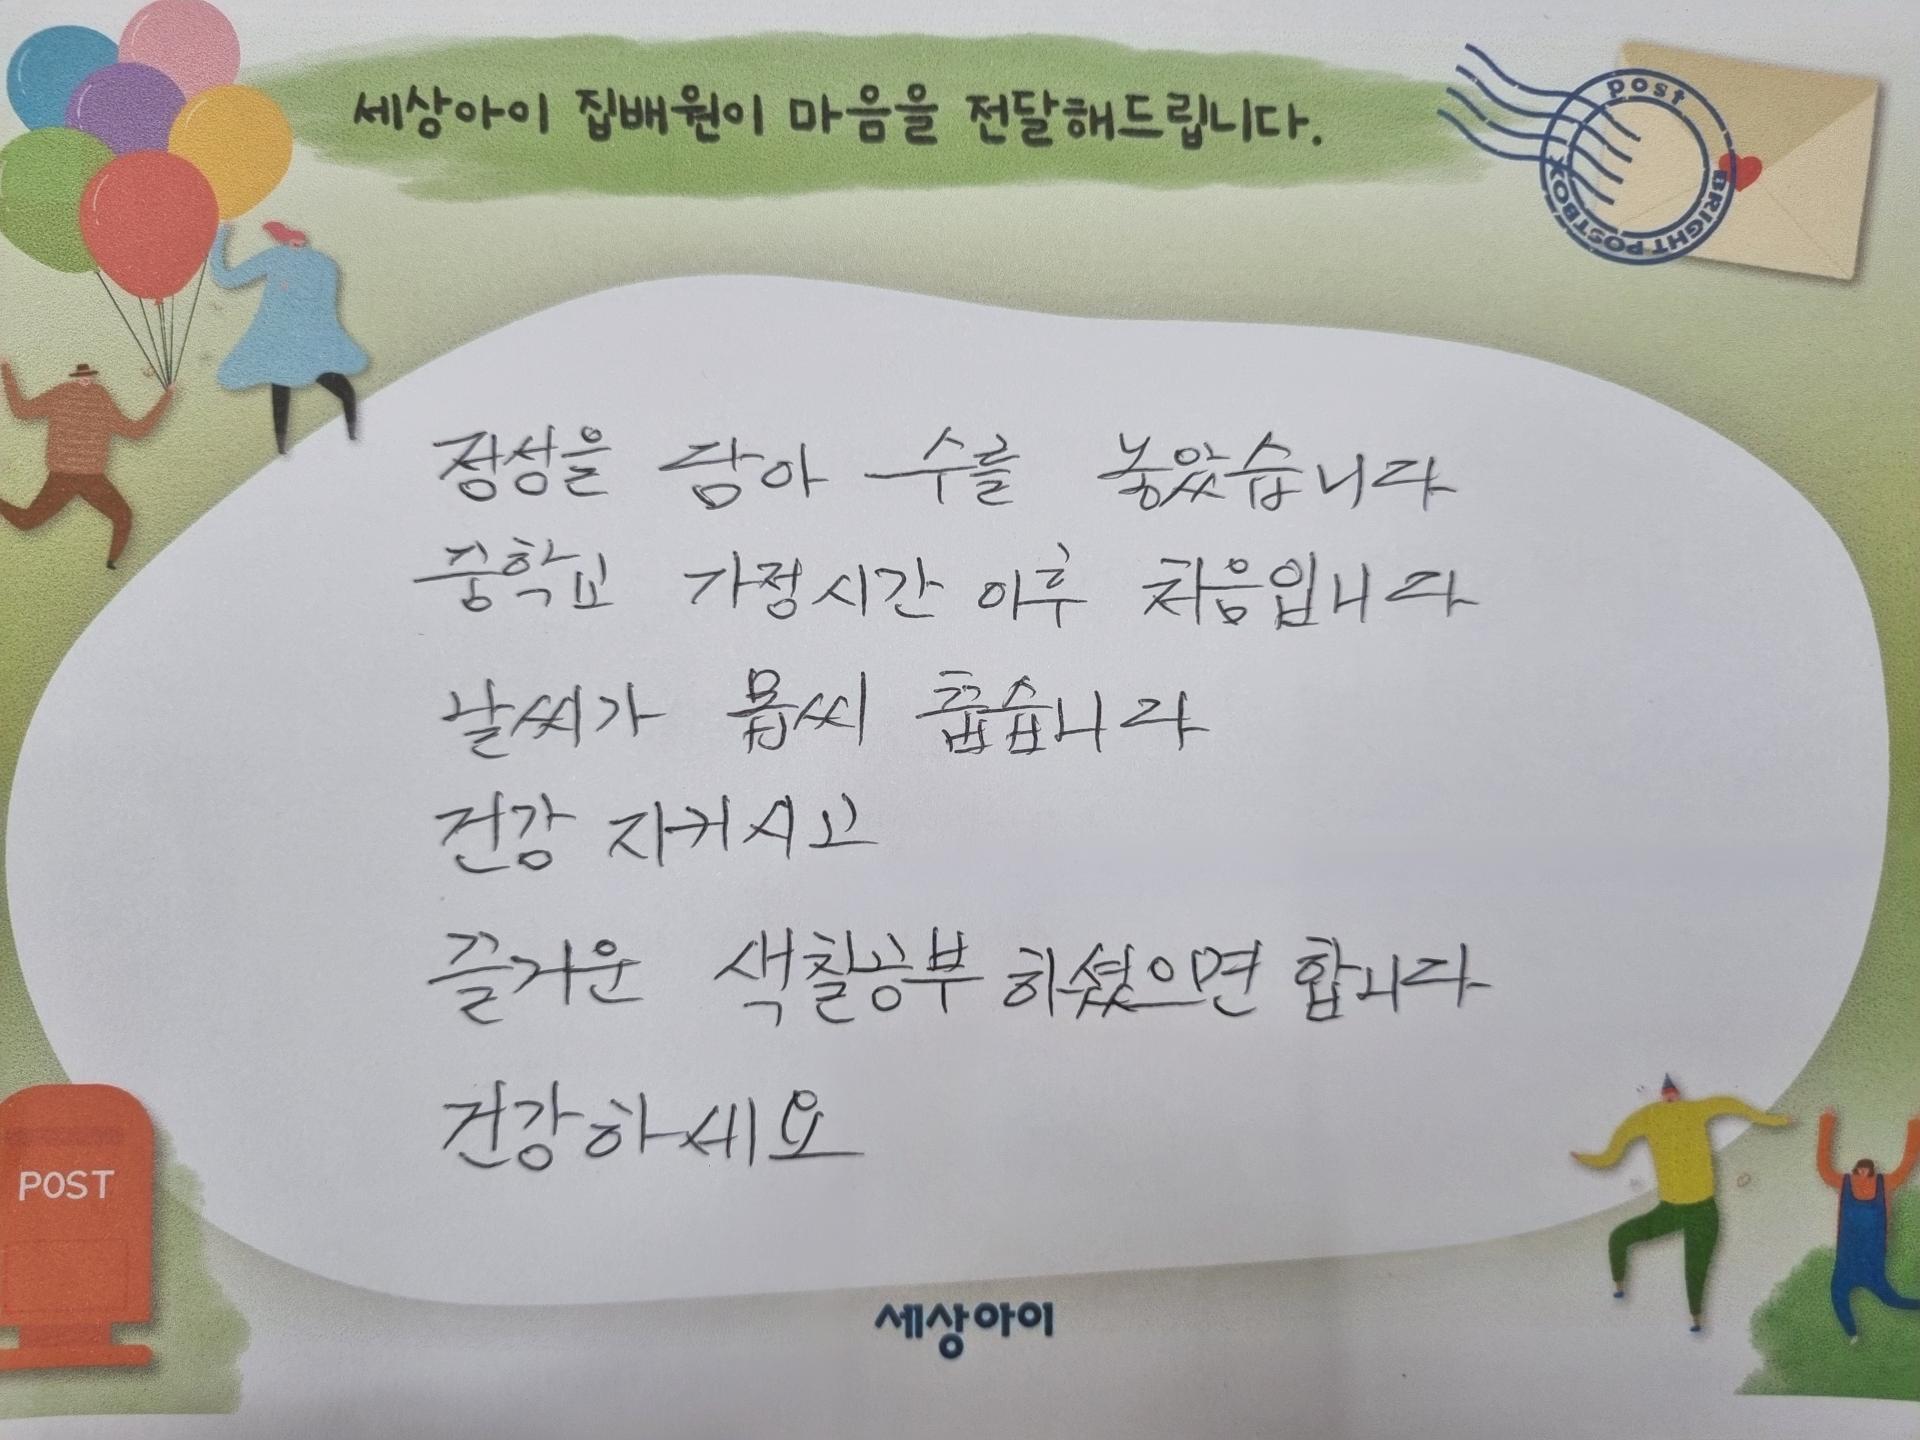 세상아이 집배원이 마음을 전달해드립니다.
post
BRIGHT POSTBOX
정성을 담아 수를 놓았습니다
중학교 가정시간 이후 처음입니다
날씨가 몹씨 춥습니다
건강 지키시고
즐거운 색칠공부 하셨으면 합니다
건강하세요
POST
세상아이